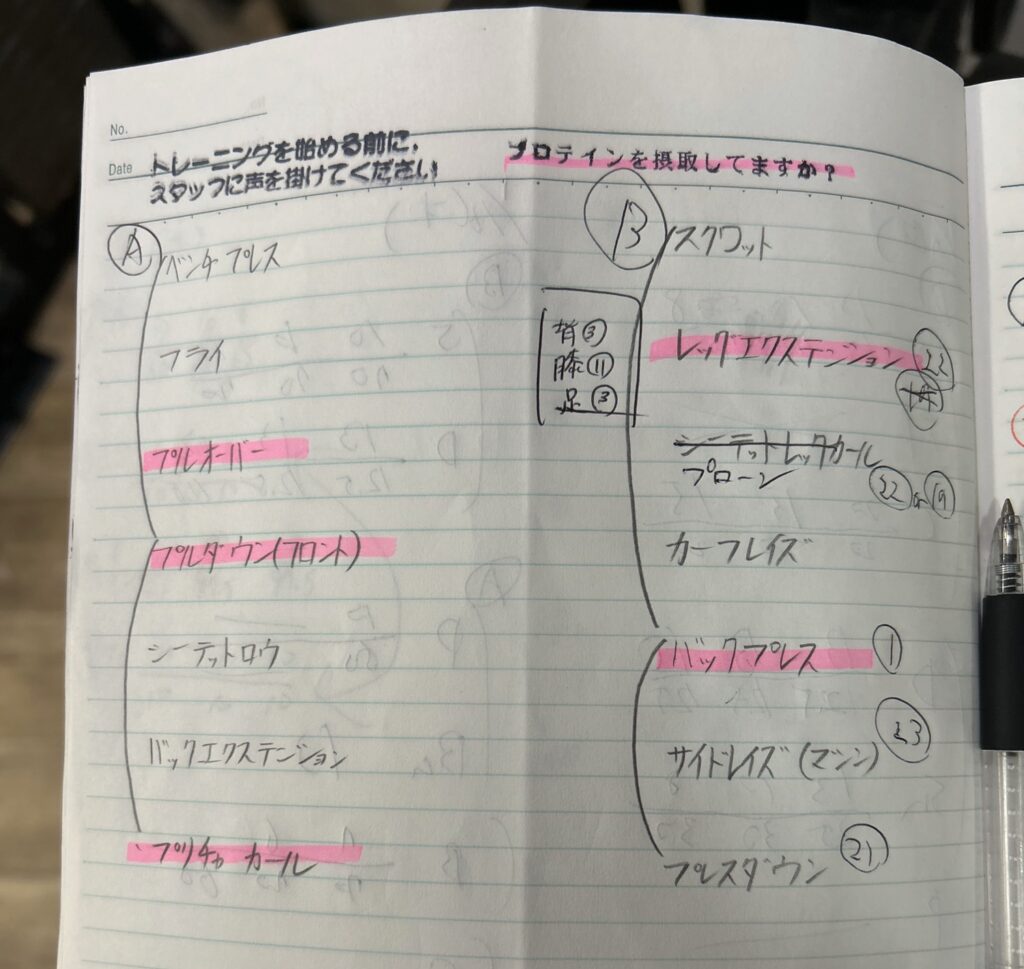 No.
Date
トレーニングを始める前に、
スタッフに声を掛けてください
プロテインを摂取してますか？
A
ベンチプレス
フライ
プルオーバー
プルダウン(フロント)
シーテットロウ
バックエクステンション
プリチャーカール
B
スクワット
背③
膝⑪
足③
レッグエクステンション 22
14
シーテットレッグカール
プローン 22 or 19
カーフレイズ
バックプレス ①
サイドレイズ(マシン) 23
プレスダウン 21